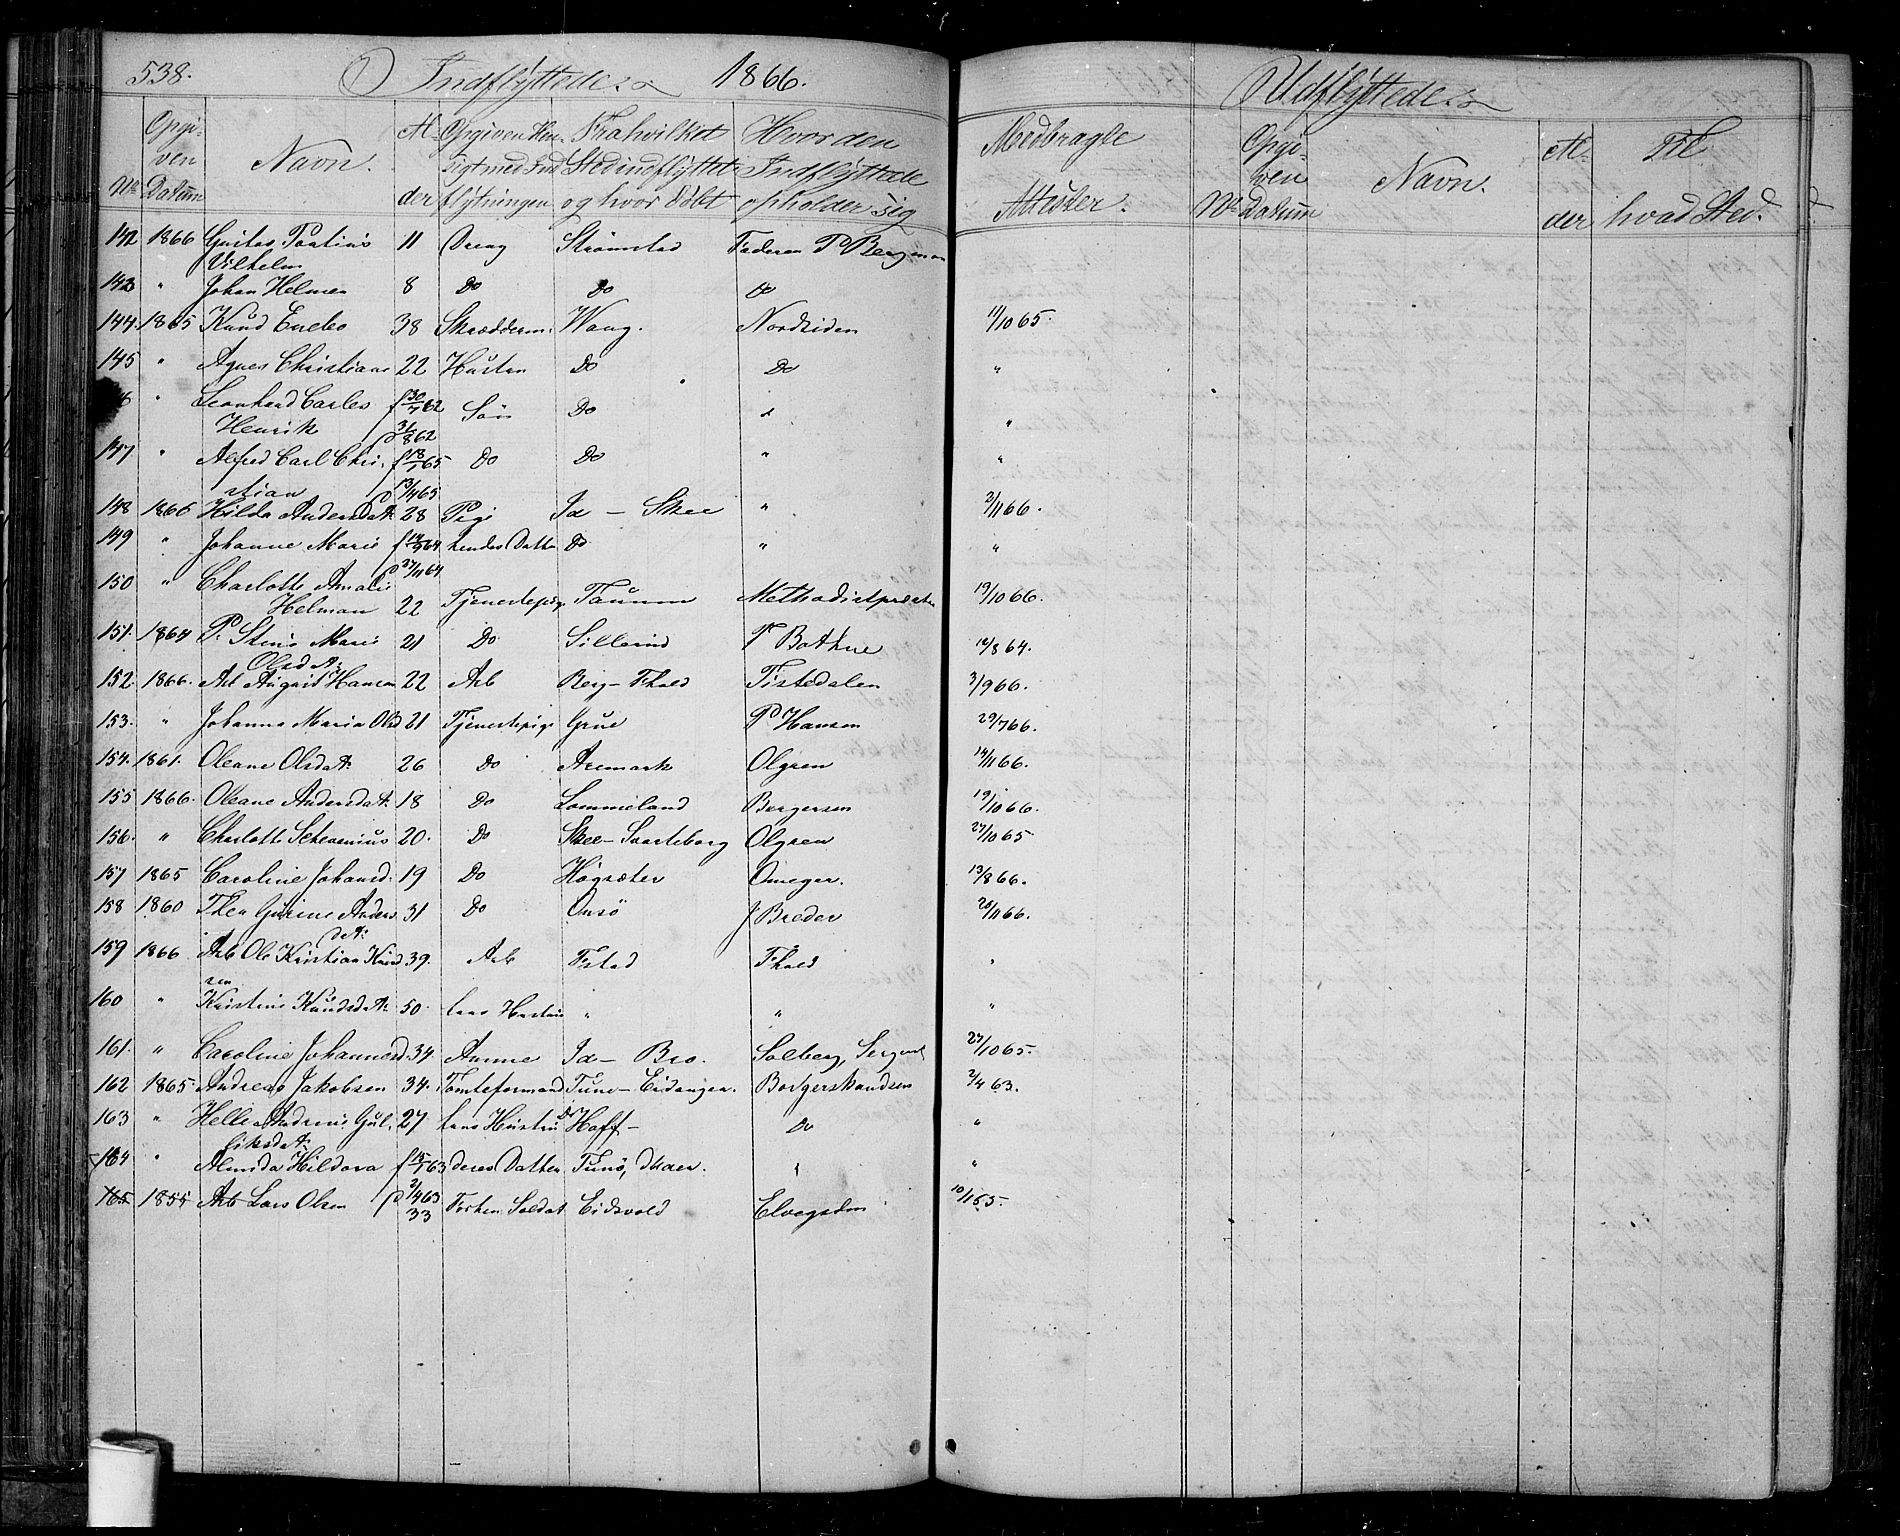 538. Indflyttede 1866. Udflyttede
No Opgiven Datum Navn. Alder Opgiven Hensigt med Indflytningen Fra hvilket Sted indflyttet og hvor Født Hvor den Indflyttede opholder sig Medbragte Attester. No Opgiven Datum Navn. Alder Til hvad Sted.
142 1866 Gustav Pontius 11 Dreng Strømstad Faderen P Bergman
Vilhelm
143 " Johan Helmer 8 Do Do Do
144. 1865 Knud Enebo 38 Skrædderm. Wang. Nordsiden 11/10 65.
145 " Agnes Christiane 22 Hustru Do Do "
" Leonhard Carles f 30/7 62 Søn Do "
Henrik 31/8 62 "
147 " Alfred Carl Chri- f 18/1 65 Do Do " "
stian 13/4 65
148 1866 Hilda Andersdt. 28 Pige Id - Skee " 2/11 66.
149 " Johanne Marie f 64 hendes Datter Do " "
27/11 64
150 " Charlotte Amalie
Helman 22 Tjenestepige Taunum Methodistpræsten 19/10 66.
151. 1864 P. Stine Marie 21 Do Sillerud P Bothne 12/8 64.
Olsdt.
152. 1866. Arb August Hansen 22 Arb Berg - Fhald Tistedalen 3/9 66.
153. " Johanne Maria Olsd 21 Tjenestepige Grue P Hansen 29/7 66.
154. 1861. Oleane Olsdt. 26 Do Aremark Olgren 14/11 66.
155 1866. Oleane Andersdt. 18 Do Lommeland Borgersen 19/10 66.
156. " Charlotte Schevenius 20. Do Skee - Svarteborg Olgren 27/10 65.
157 1865 Caroline Johansd. 19 Do Høgsæter Omegar. 13/8 66.
158 1860 Thea Gurine Anders 31 Do Onsø J Breder 28/11 66.
dt.
159 1866 Arb Ole Kristian Knud 39. Arb Fstad Fhald "
sen
160 " Kristine Knudsdt. 50. hans Hustru " " "
161. " Caroline Johannesd. 34. Amme Id - Bro. Solberg, Sergent 27/10 65.
162 1865. Andreas Jakobsen 34. Tomteformand Tune - Eidanger. Borgerskandsen 2/4 63.
163 " Helle Andrine Gul- 27 hans Hustru Do Hoff - Do "
liksdt.
164 " Almida Hildora f 15/1 63 deres Datter Tunø, dhaer. " "
2/4 63
165 1855 Arb Lars Olsen 33 Forhen Soldat Eidsvold Elvegaden 10/1 55.